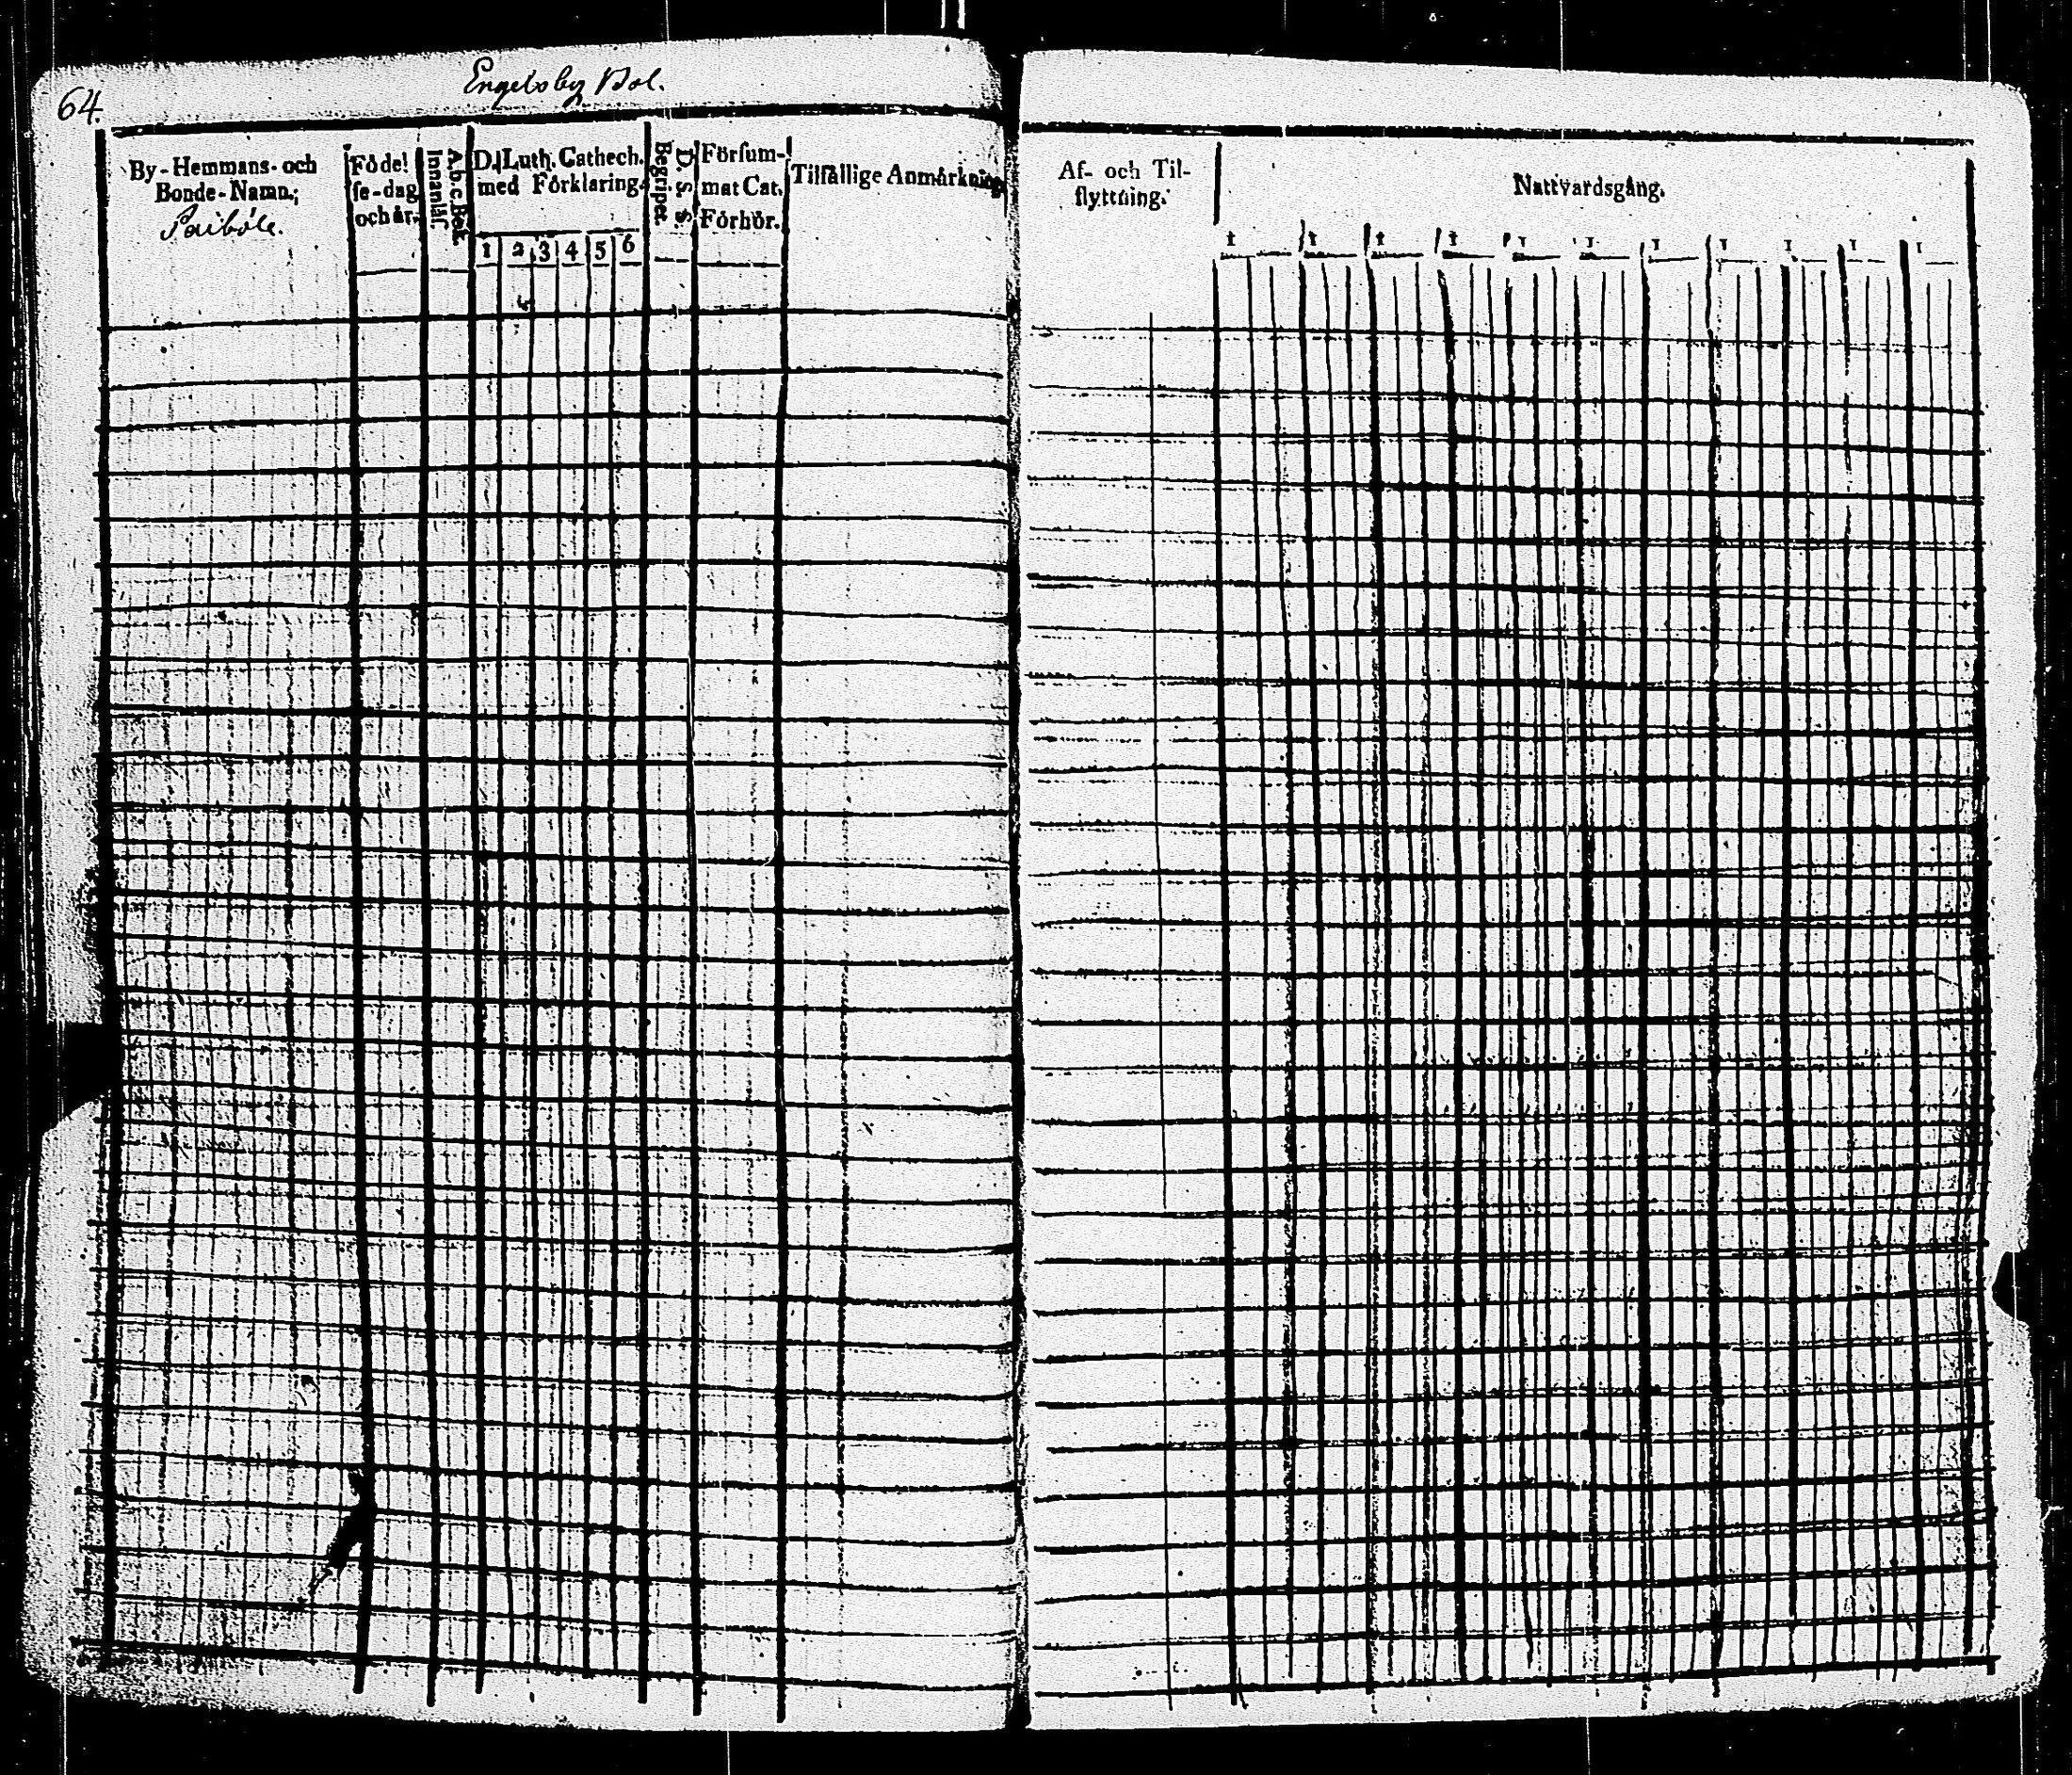 64.
Engelsby Bol.
By-Hemmans- och
Bonde-Namn.;
Paiböle.
Födel
se-dag
och år.
A.b.c. Bok.
Innanläs.
D. Luth. Cathech.
med Förklaring.
1 2 3 4 5 6
D. S. S.
Begripet.
Försum-
mat Cat.
Förhör.
Tilfällige Anmärkning
Af- och Til-
flyttning.
Nattvardsgång.
1 1 1 1 1 1 1 1 1 1 1